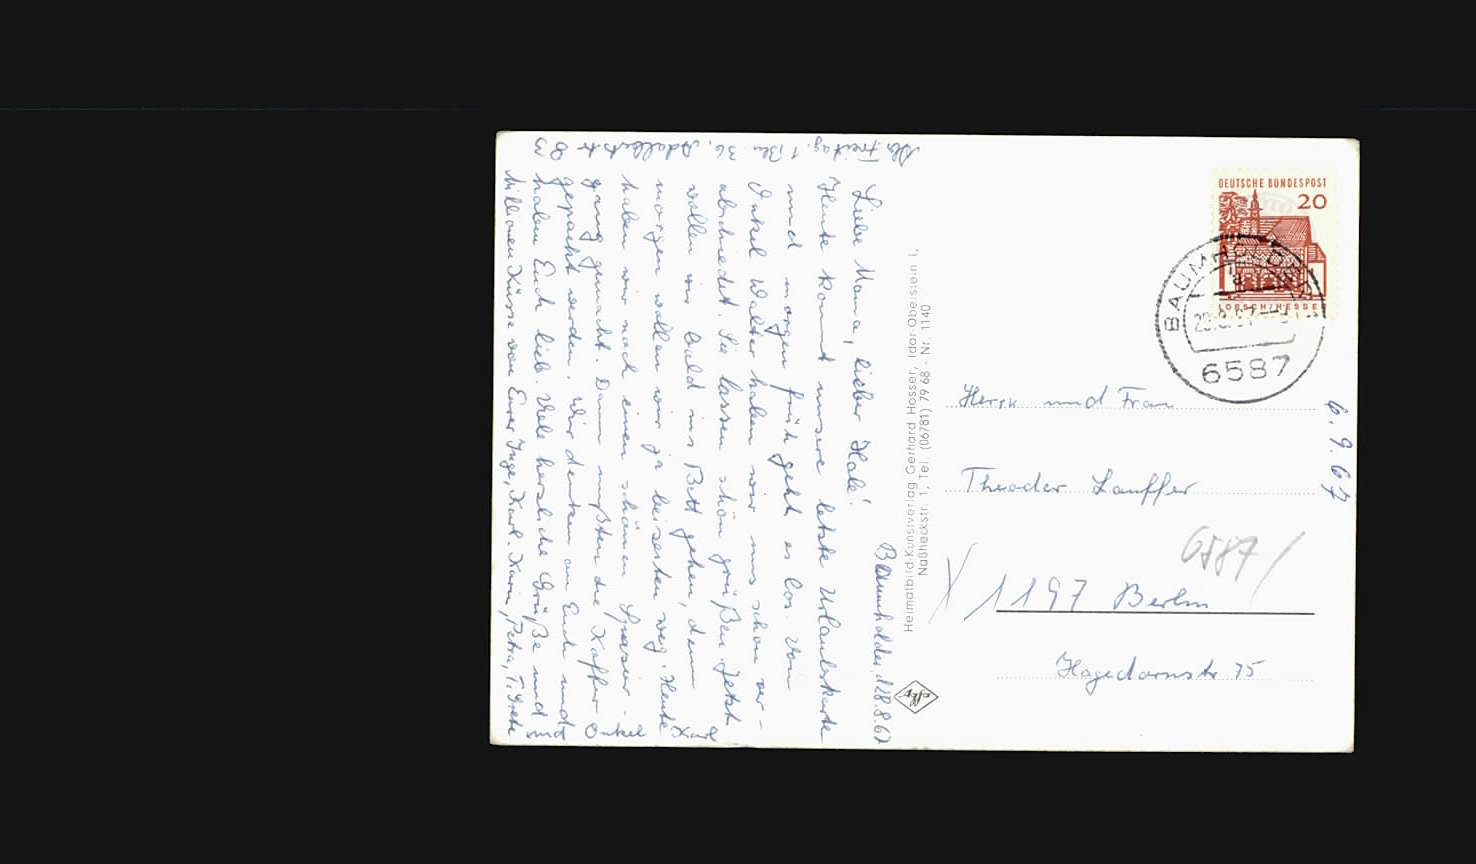 Abs. Freitag, 1 Bln 36, Adalbertstr 83
Baumholder, d 28.8.67
Liebe Mama, lieber Hale!
Heute kommt unsere letzte Urlaubskarte
und morgen früh geht es los. Von
Onkel Walter haben wir uns schon ver-
abschiedet. Sie lassen schön grüßen. Jetzt
wollen wir bald ins Bett gehen, denn
morgen wollen wir ja beizeiten weg. Heute
haben wir noch einen schönen Spazier-
gang gemacht. Dann mußten die Koffer
gepackt werden. Wir denken an Euch und
haben Euch lieb. Viele herzliche Grüße und
Millionen Küsse von Eurer Inge, Karl. Karin, Petra, T. Grete
und Onkel Karl
Heimatbild-Kunstverlag Gerhard Hosser, Idar-Oberstein 1,
Naßheckstr. 1, Tel. (06781) 79 68 - Nr. 1140
DEUTSCHE BUNDESPOST
20
LORSCH/HESSEN
BAUMHOLDER
6587
6.9.67
Herrn und Frau
Theodor Lauffer
6587
1197 Berlin
Hagedornstr 75